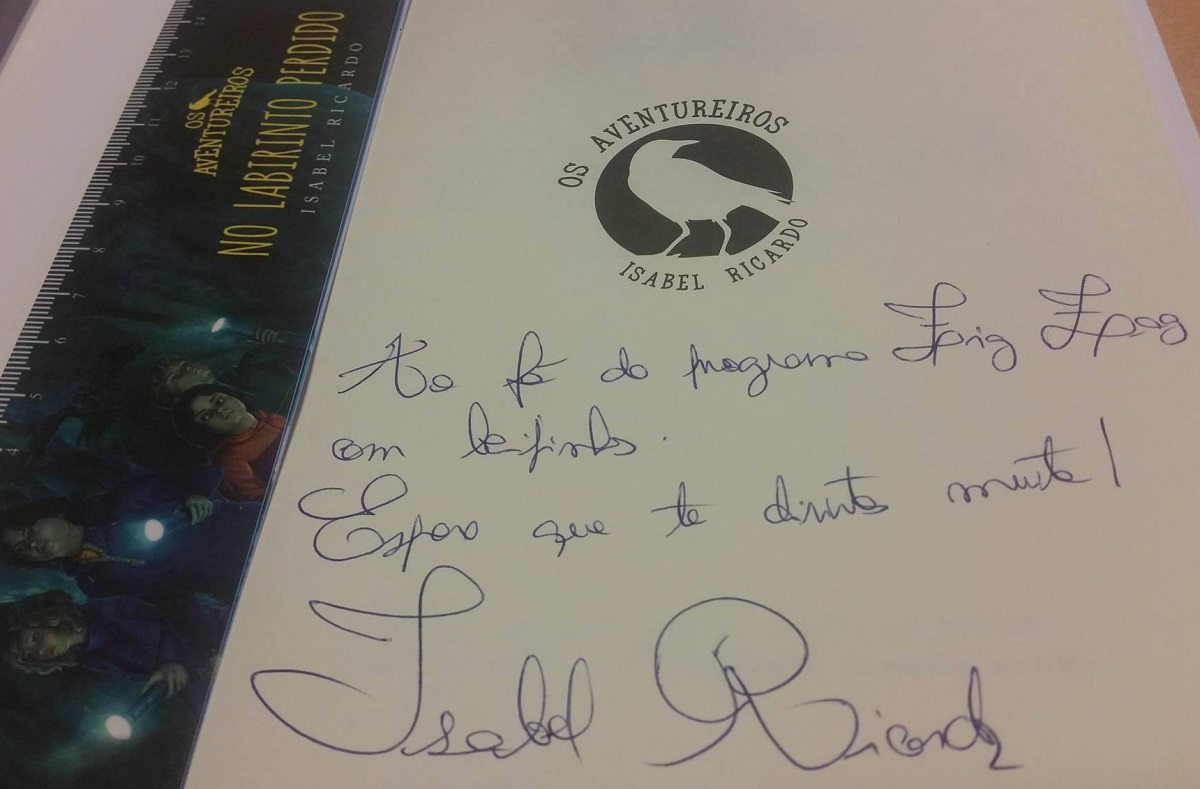 OS AVENTUREIROS
NO LABIRINTO PERDIDO
ISABEL RICARDO
14
13
12
11
10
9
8
7
6
5
4
OS AVENTUREIROS
ISABEL RICARDO
Ao fã do programa Zig Zag
com beijinhos.
Espero que te divirtas muito!
Isabel Ricardo